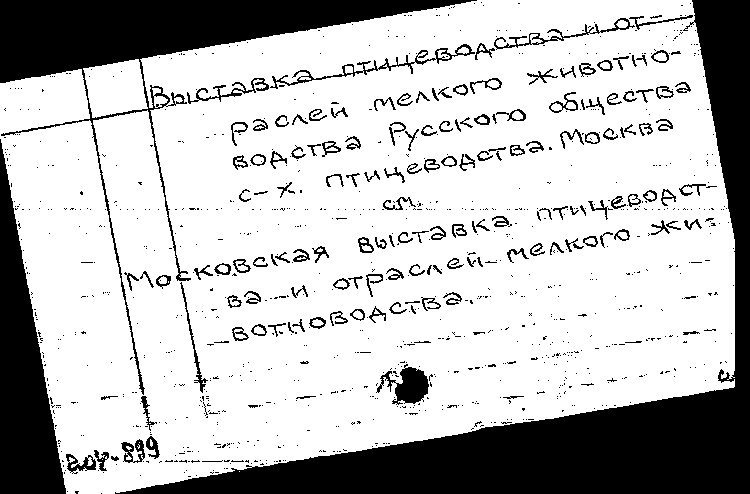 Выставка птицеводства и от-
раслей мелкого животно-
водства Русского общества
с-х. птицеводства. Москва
см.
Московская выставка птицеводст-
ва и отраслей мелкого жи-
вотноводства.